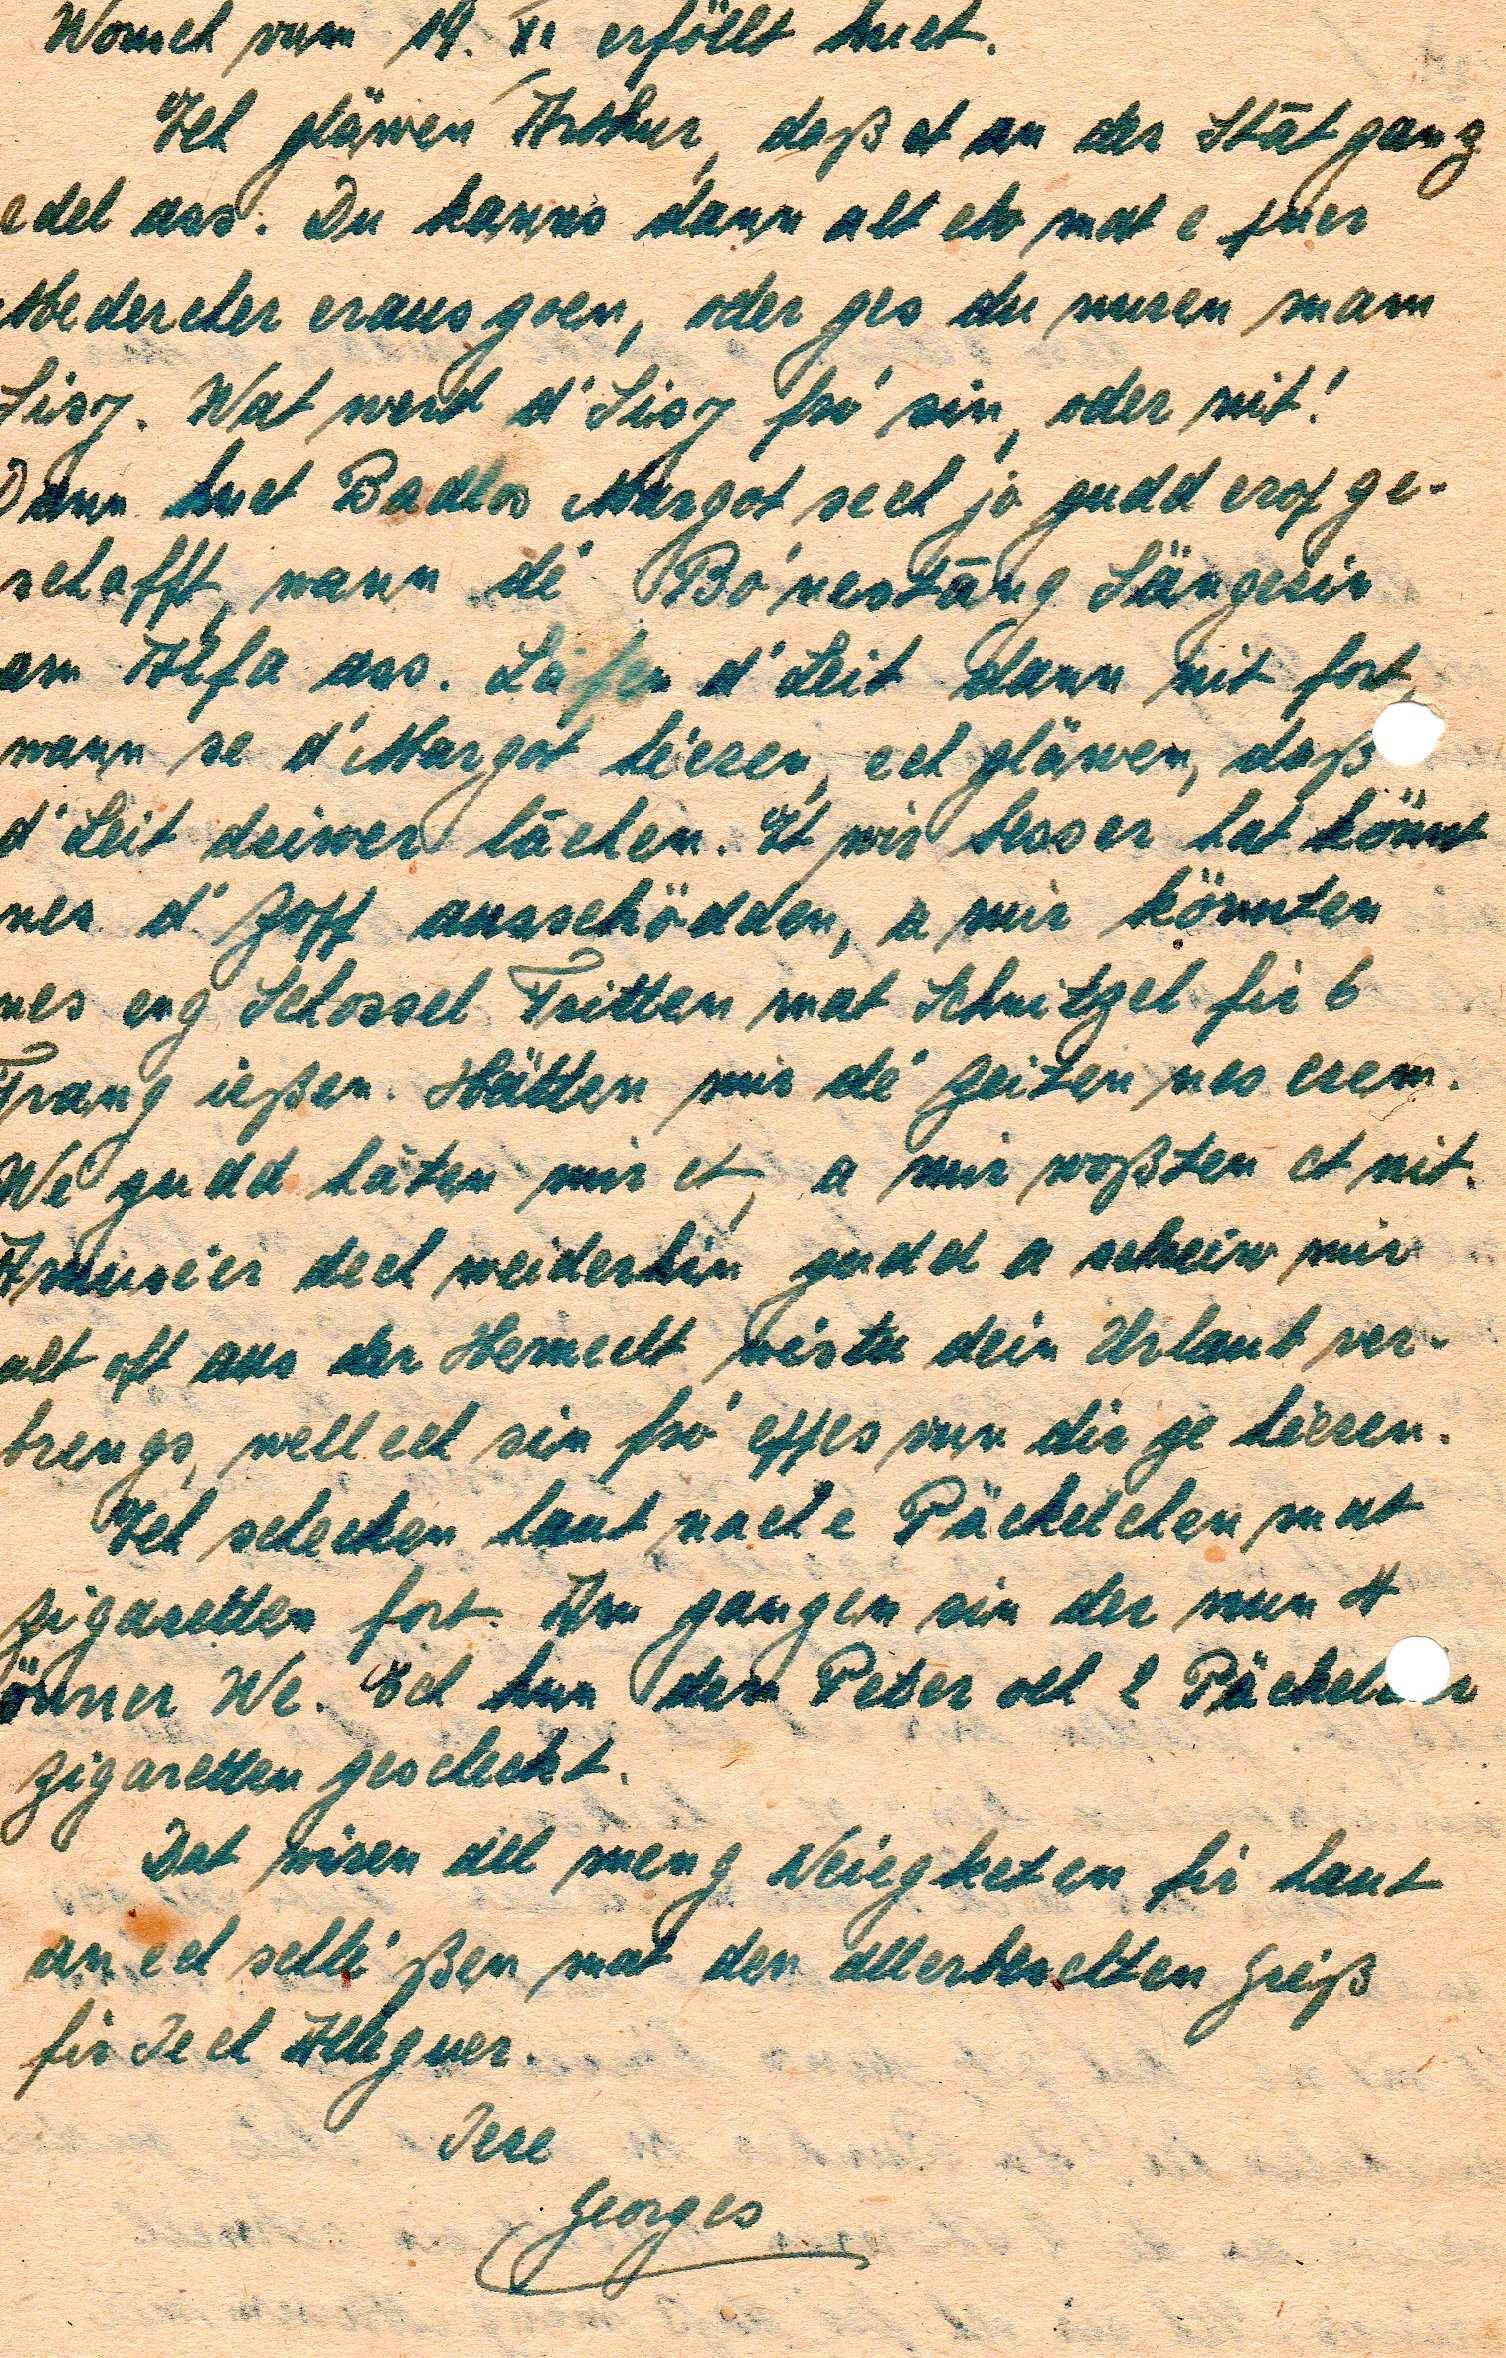 Wonsch vum 19. XI erföllt huet.
Ech gläwen Arthur, daß et an der Stāt ganz
edel ass. Du kanns dann alt ele mat e puer
Medercher erausgoen, oder ges du nuren mam
Lisy. Wat werd d'Lisy fro' sin, oder nit!
Dann huet Badlos Margot sech jo gudd erof ge-
schafft, wann dé Bo'nestāng Sängerin
am Alfa ass. Läfen d'Leit dann nit fort,
wann se d'Margot héeren, ech gläwen, daß
d'Leit driwer lāchen. Et wir besser hat könnt
nes d'Zopp ausschödden, a mir könnten
nes eng Schossel Fritten mat Schnitzel fir 6
Frang ießen. Hätten mir dé Zeiten nes erem.
Wé gudd hāten mir et, a mir woßten et nit.
Amuse'er dech weiderhin gudd a schreiw mir
alt oft aus der Hemecht wéstu dein Urlaub ver-
brengs, well ech sin fro' eppes vun dir ze héeren.
Ech schecken haut nach e Päckelchen mat
Zigaretten fort. Am ganzen sin der nun 4
önner We. Ech hun dem Peter och 2 Päckelcher
Zigaretten gescheckt.
Dat wiren all meng Neiegketen fir haut
an ech schlé'ßen mat den allerbeschten Gréiß
fir Iech Alleguer.
Iere
Georges